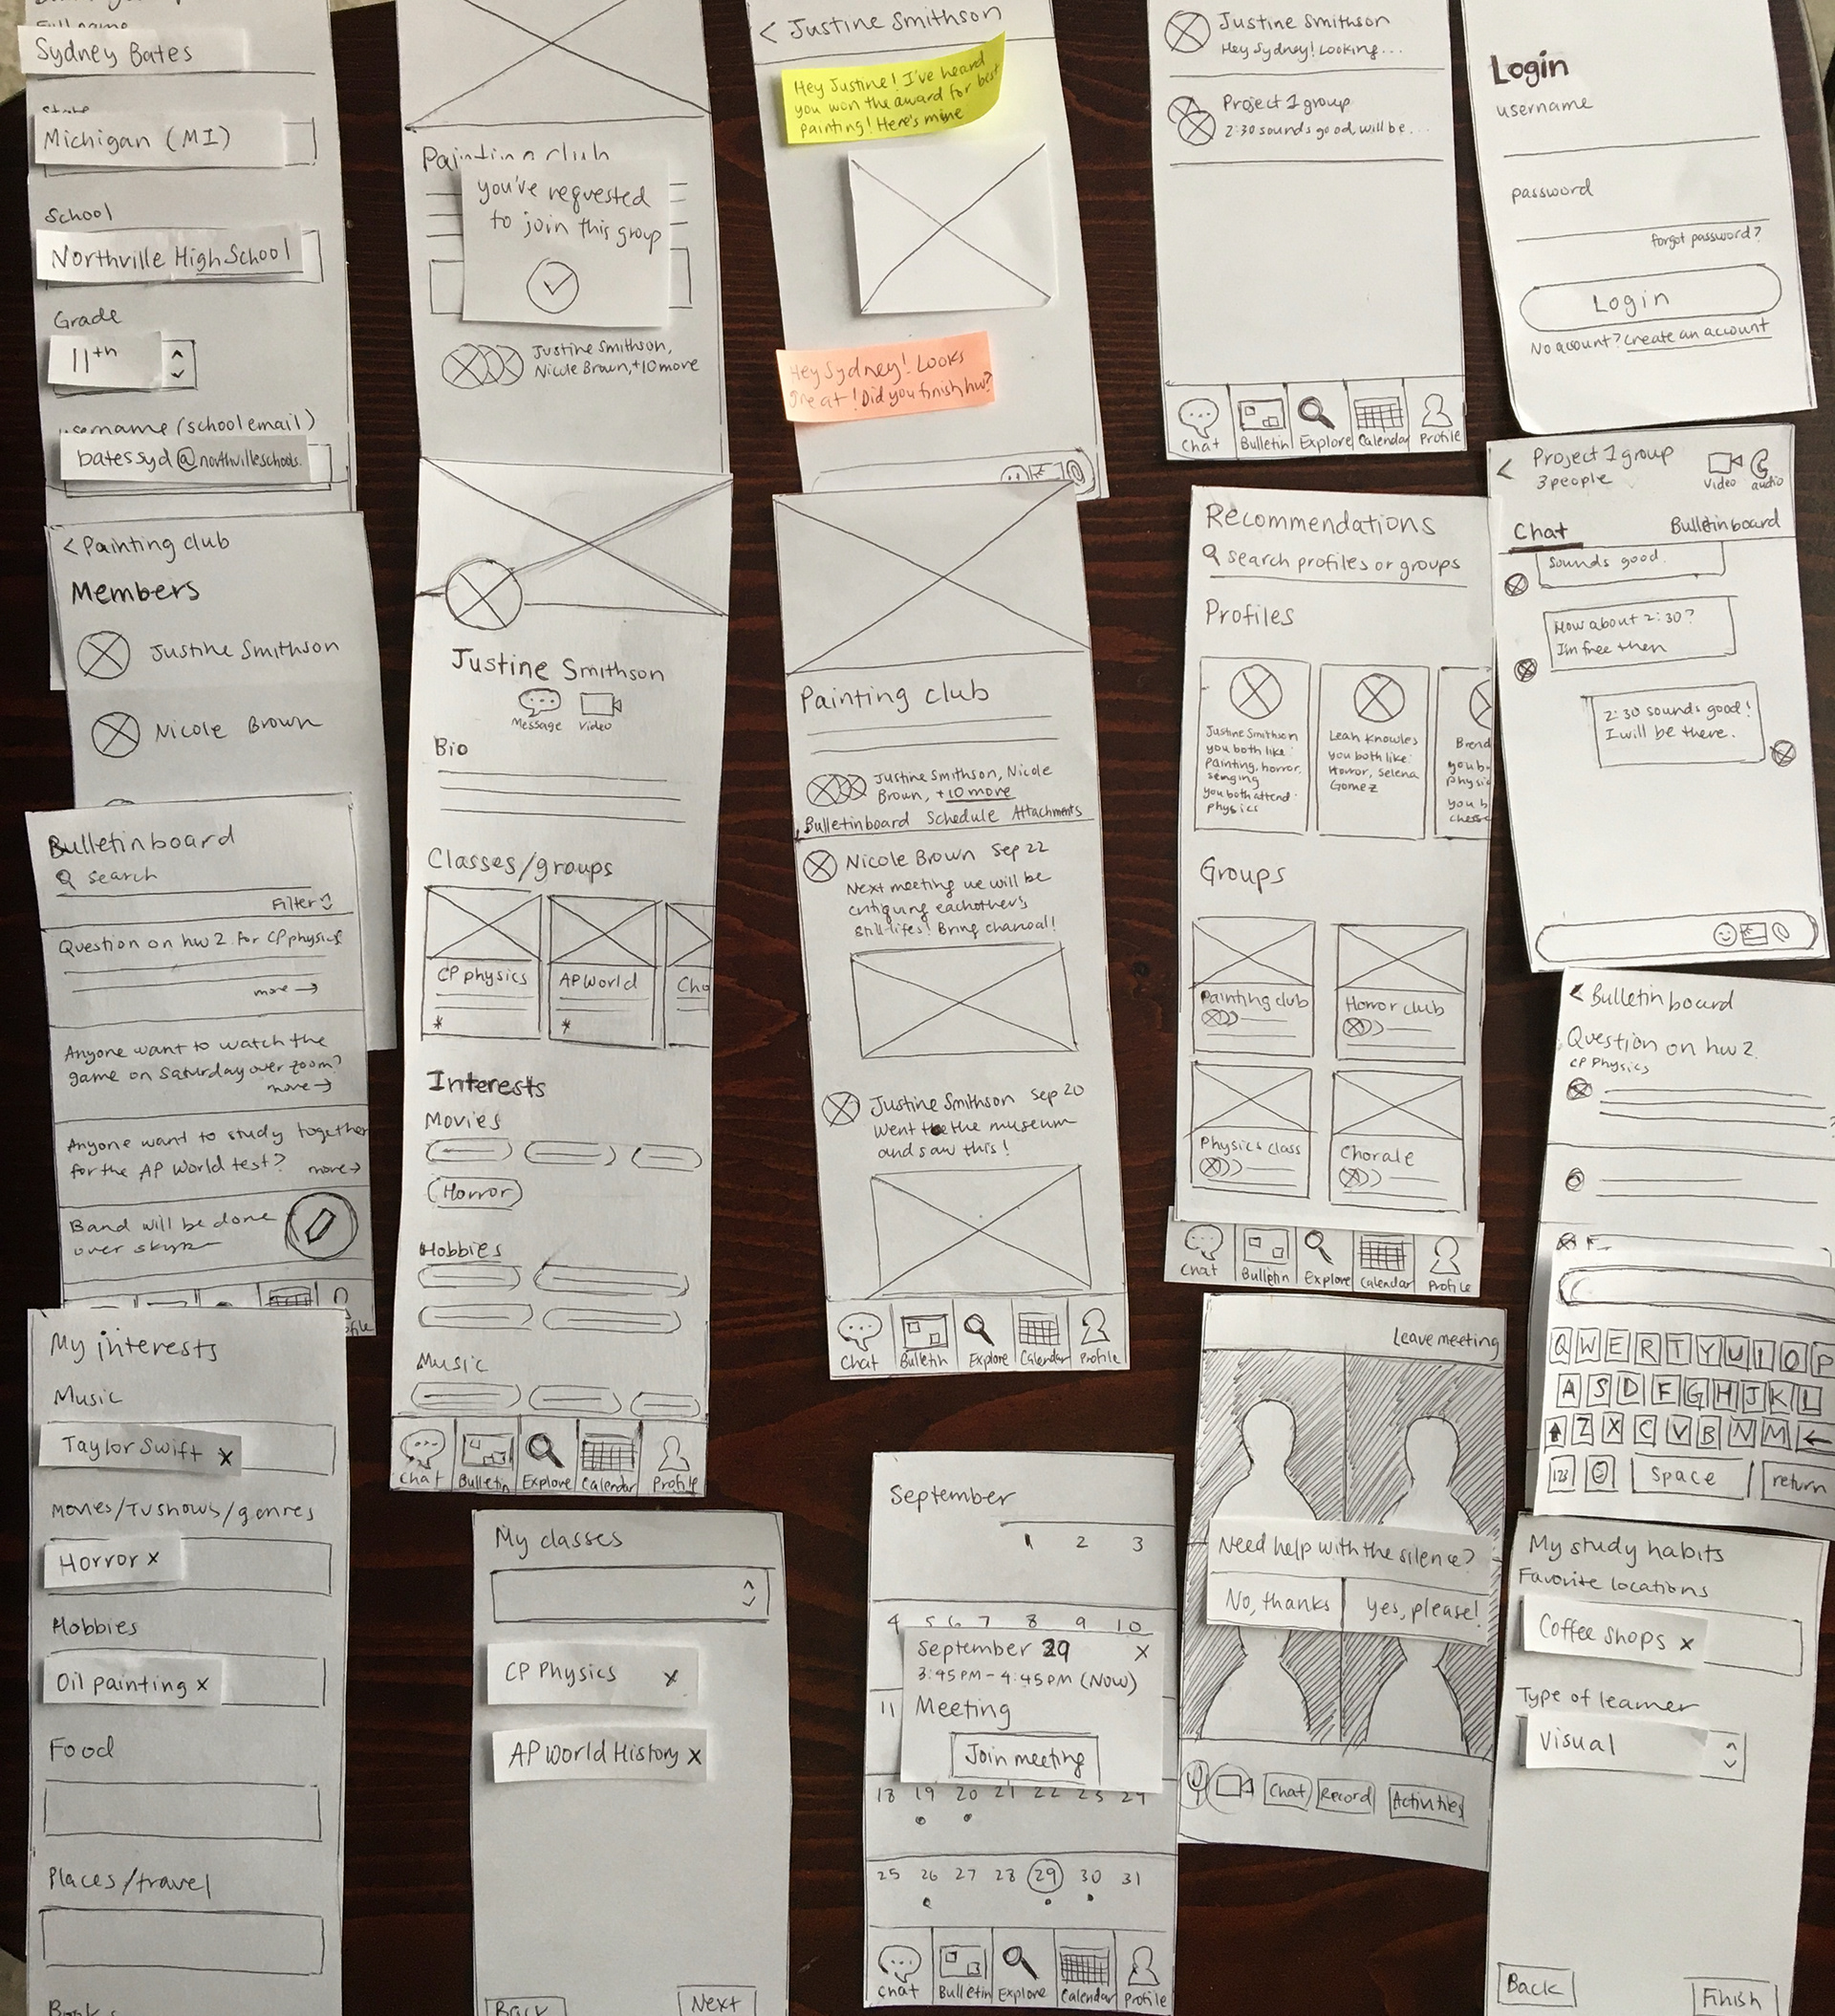 Full name
Sydney Bates
State
Michigan (MI)
School
Northville High School
Grade
11th
username (school email)
batessyd@northvilleschools.
< Painting club
Members
Justine Smithson
Nicole Brown
Bulletin board
search
Filter
Question on hw 2 for CP physics
more →
Anyone want to watch the
game on Saturday over zoom?
more →
Anyone want to study together
for the AP World test? more →
Band will be done
over skype
My interests
Music
Taylor Swift x
Movies/TV shows/genres
Horror x
Hobbies
Oil painting x
Food
Places/travel
Books
Painting club
you've requested
to join this group
Justine Smithson,
Nicole Brown, +10 more
Justine Smithson
Message Video
Bio
Classes/groups
CP physics AP World Cho
* *
Interests
Movies
Horror
Hobbies
Music
Chat Bulletin Explore Calendar Profile
My classes
CP Physics x
AP World History x
Back Next
< Justine Smithson
Hey Justine! I've heard
you won the award for best
painting! Here's mine
Hey Sydney! Looks
great! Did you finish hw?
Painting club
Justine Smithson, Nicole
Brown, +10 more
Bulletinboard Schedule Attachments
Nicole Brown Sep 22
Next meeting we will be
critiquing eachothers
still-lifes! Bring charcoal!
Justine Smithson Sep 20
Went to the museum
and saw this!
Chat Bulletin Explore Calendar Profile
September
1 2 3
4 5 6 7 8 9 10
September 29 X
3:45 PM - 4:45 PM (NOW)
11 Meeting
Join meeting
18 19 20 21 22 23 24
25 26 27 28 29 30 31
Chat Bulletin Explore Calendar Profile
Justine Smithson
Hey Sydney! Looking...
Project 1 group
2:30 sounds good, will be...
Chat Bulletin Explore Calendar Profile
Recommendations
search profiles or groups
Profiles
Justine Smithson
you both like:
painting, horror,
singing
you both attend:
physics
Leah Knowles
you both like:
Horror, Selena
Gomez
Brend
you b
physic
you b
chess
Groups
Painting club Horror club
Physics class Chorale
Chat Bulletin Explore Calendar Profile
Leave meeting
Need help with the silence?
No, thanks yes, please!
Chat Record Activities
Login
username
password
forgot password?
Login
No account? Create an account
< Project 1 group
3 people
Video audio
Chat Bulletin board
Sounds good.
How about 2:30?
I'm free then
2:30 sounds good!
I will be there.
< Bulletin board
Question on hw 2
CP Physics
Q W E R T Y U I O P
A S D F G H J K L
Z X C V B N M ←
123 space return
My study habits
Favorite locations
Coffee shops x
Type of learner
Visual
Back Finish